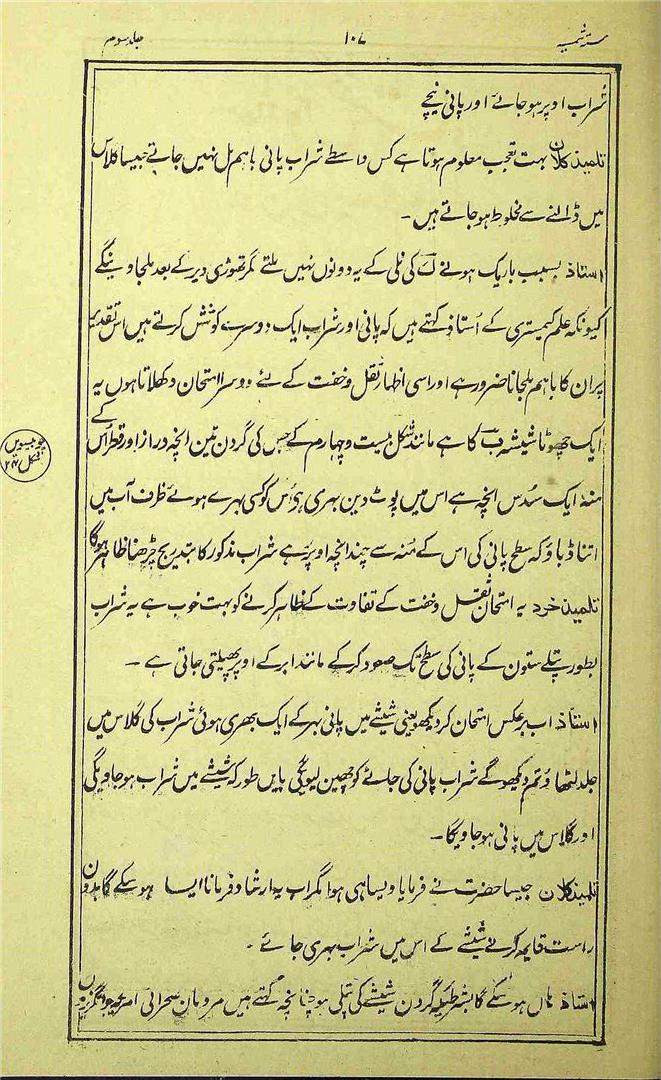 ستہ شمسیہ ۱۰۷ جلد سوم
شراب اوپر ہو جائے اور پانی نیچے
تلمیذ کلان بہت تعجب معلوم ہوتا ہے کس واسطے شراب پانی باہم مل نہیں جاتے جیسا گلاس
میں ڈالنے سے مخلوط ہو جاتے ہیں ۔
استاذ بسبب باریک ہونے کی نلی کے یہ دونوں نہیں ملتے مگر تھوڑی دیر کے بعد ملجاوینگے
کیونکہ علم کیمسٹری کے استاذ کہتے ہیں کہ پانی اور شراب ایک دوسرے کو کشش کرتے ہیں اس تقدیر
پر ان کا باہم ملجانا ضرور ہے اور اسی اظہار ثقل و خفت کے لئے دوسرا امتحان دکھلاتا ہوں یہ
ایک چھوٹا شیشہ ب کا ہے مانند شکل بیست و چہارم کے جس کی گردن تین انچہ دراز اور قطر اس کے
منہ ایک سُدس انچہ ہے اس میں پوٹ دین بہری ہے اس کو کسی بہرے ہوئے ظرف آب میں
چوبیسویں شکل ۲۴
اتنا ڈباؤ کہ سطح پانی کی اس کے منہ سے چند انچہ اوپر ہے شراب مذکور کا بتدریج چڑھنا ظاہر ہوگا
تلمیذ خرد یہ امتحان ثقل و خفت کے تفاوت کے ظاہر کرنے کو بہت خوب ہے یہ شراب
بطور پتلے ستون کے پانی کی سطح تک صعود کر کے مانند ابر کے اوپر پھیلتی جاتی ہے ۔
استاذ اب برعکس امتحان کر دیکھو یعنی شیشے میں پانی بہر کے ایک بھری ہوئی شراب کی گلاس میں
جلد الٹھاؤ تم دیکھوگے شراب پانی کی جائے کو چھین لیویگی بایں طور کہ شیشے میں شراب ہو جاویگی
اور گلاس میں پانی ہو جاویگا ۔
تلمیذ کلان جیسا حضرت نے فرمایا ویسا ہی ہوا مگر اب یہ ارشاد فرمانا ایسا ہو سکے گا بدون
راست قایم کرنے شیشے کے اس میں شراب بہری جائے ۔
استاذ ہاں ہو سکے گا بشرطیکہ گردن شیشے کی پتلی ہو چنانچہ کہتے ہیں مردمان صحرائی امریجہ جو انگریزوں